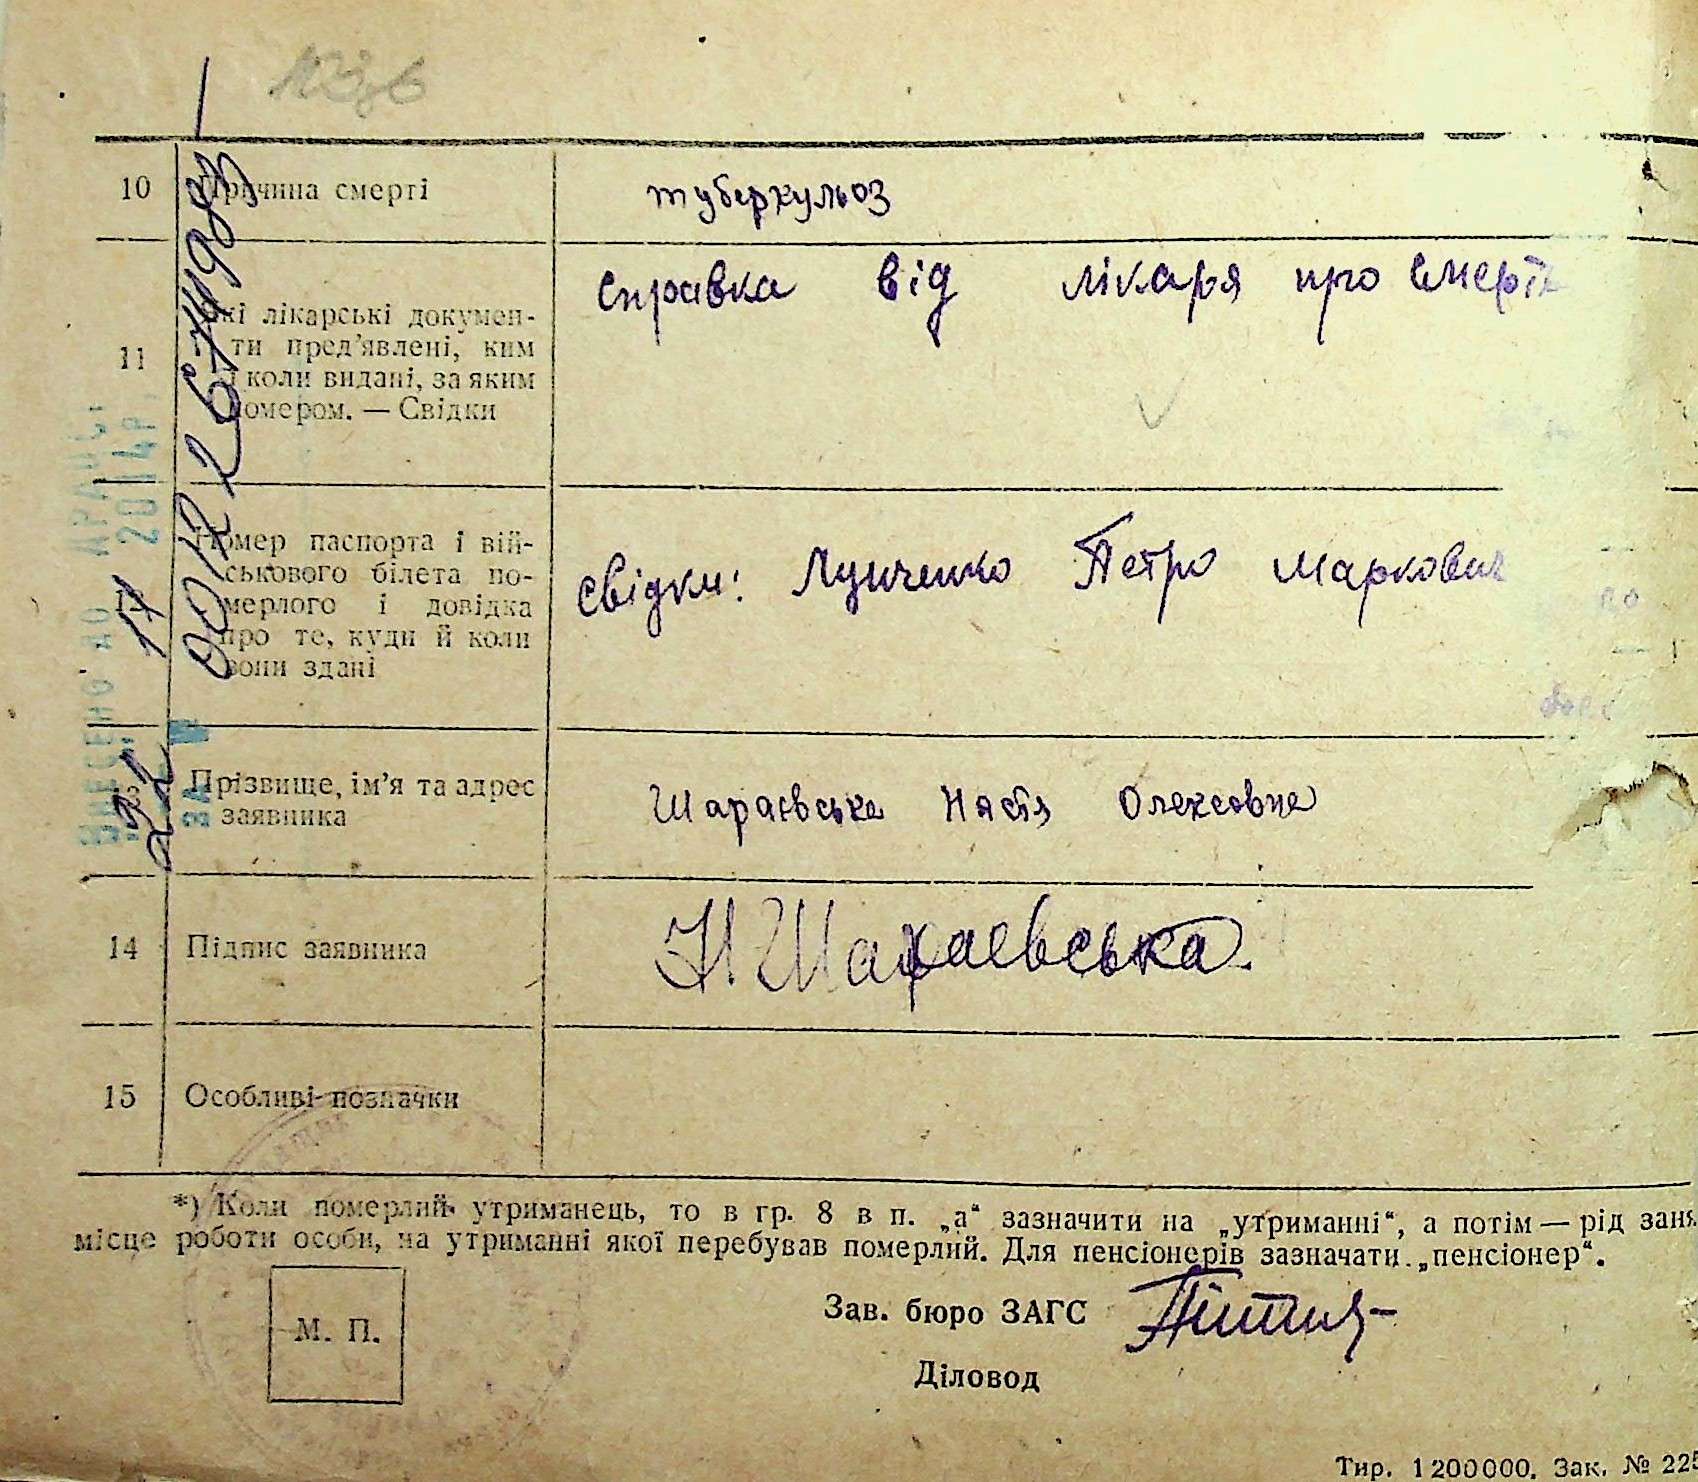 10 Причина смерті туберкульоз
справка від лікаря про смерть
Які лікарські докумен-
11 ти пред’явлені, ким
і коли видані, за яким
номером. — Свідки
Номер паспорта і вій-
ськового білета по-
мерлого і довідка
про те, куди й коли
вони здані
свідки: Лунченко Петро Маркович
Прізвище, ім’я та адрес
заявника
Шараєвська Настя Олексовна
14 Підпис заявника Н. Шараєвська
15 Особливі позначки
*) Коли померлий утриманець, то в гр. 8 в п. „а“ зазначити на „утриманні“, а потім — рід заня
місце роботи особи, на утриманні якої перебував померлий. Для пенсіонерів зазначати „пенсіонер“.
Зав. бюро ЗАГС
М. П.
Діловод
Тир. 1200000. Зак. № 225